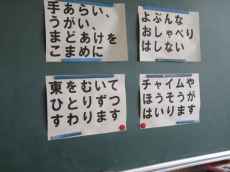 手あらい、
うがい、
まどあけを
こまめに
よぶんな
おしゃべり
はしない
東をむいて
ひとりずつ
すわります
チャイムや
ほうそうが
はいります